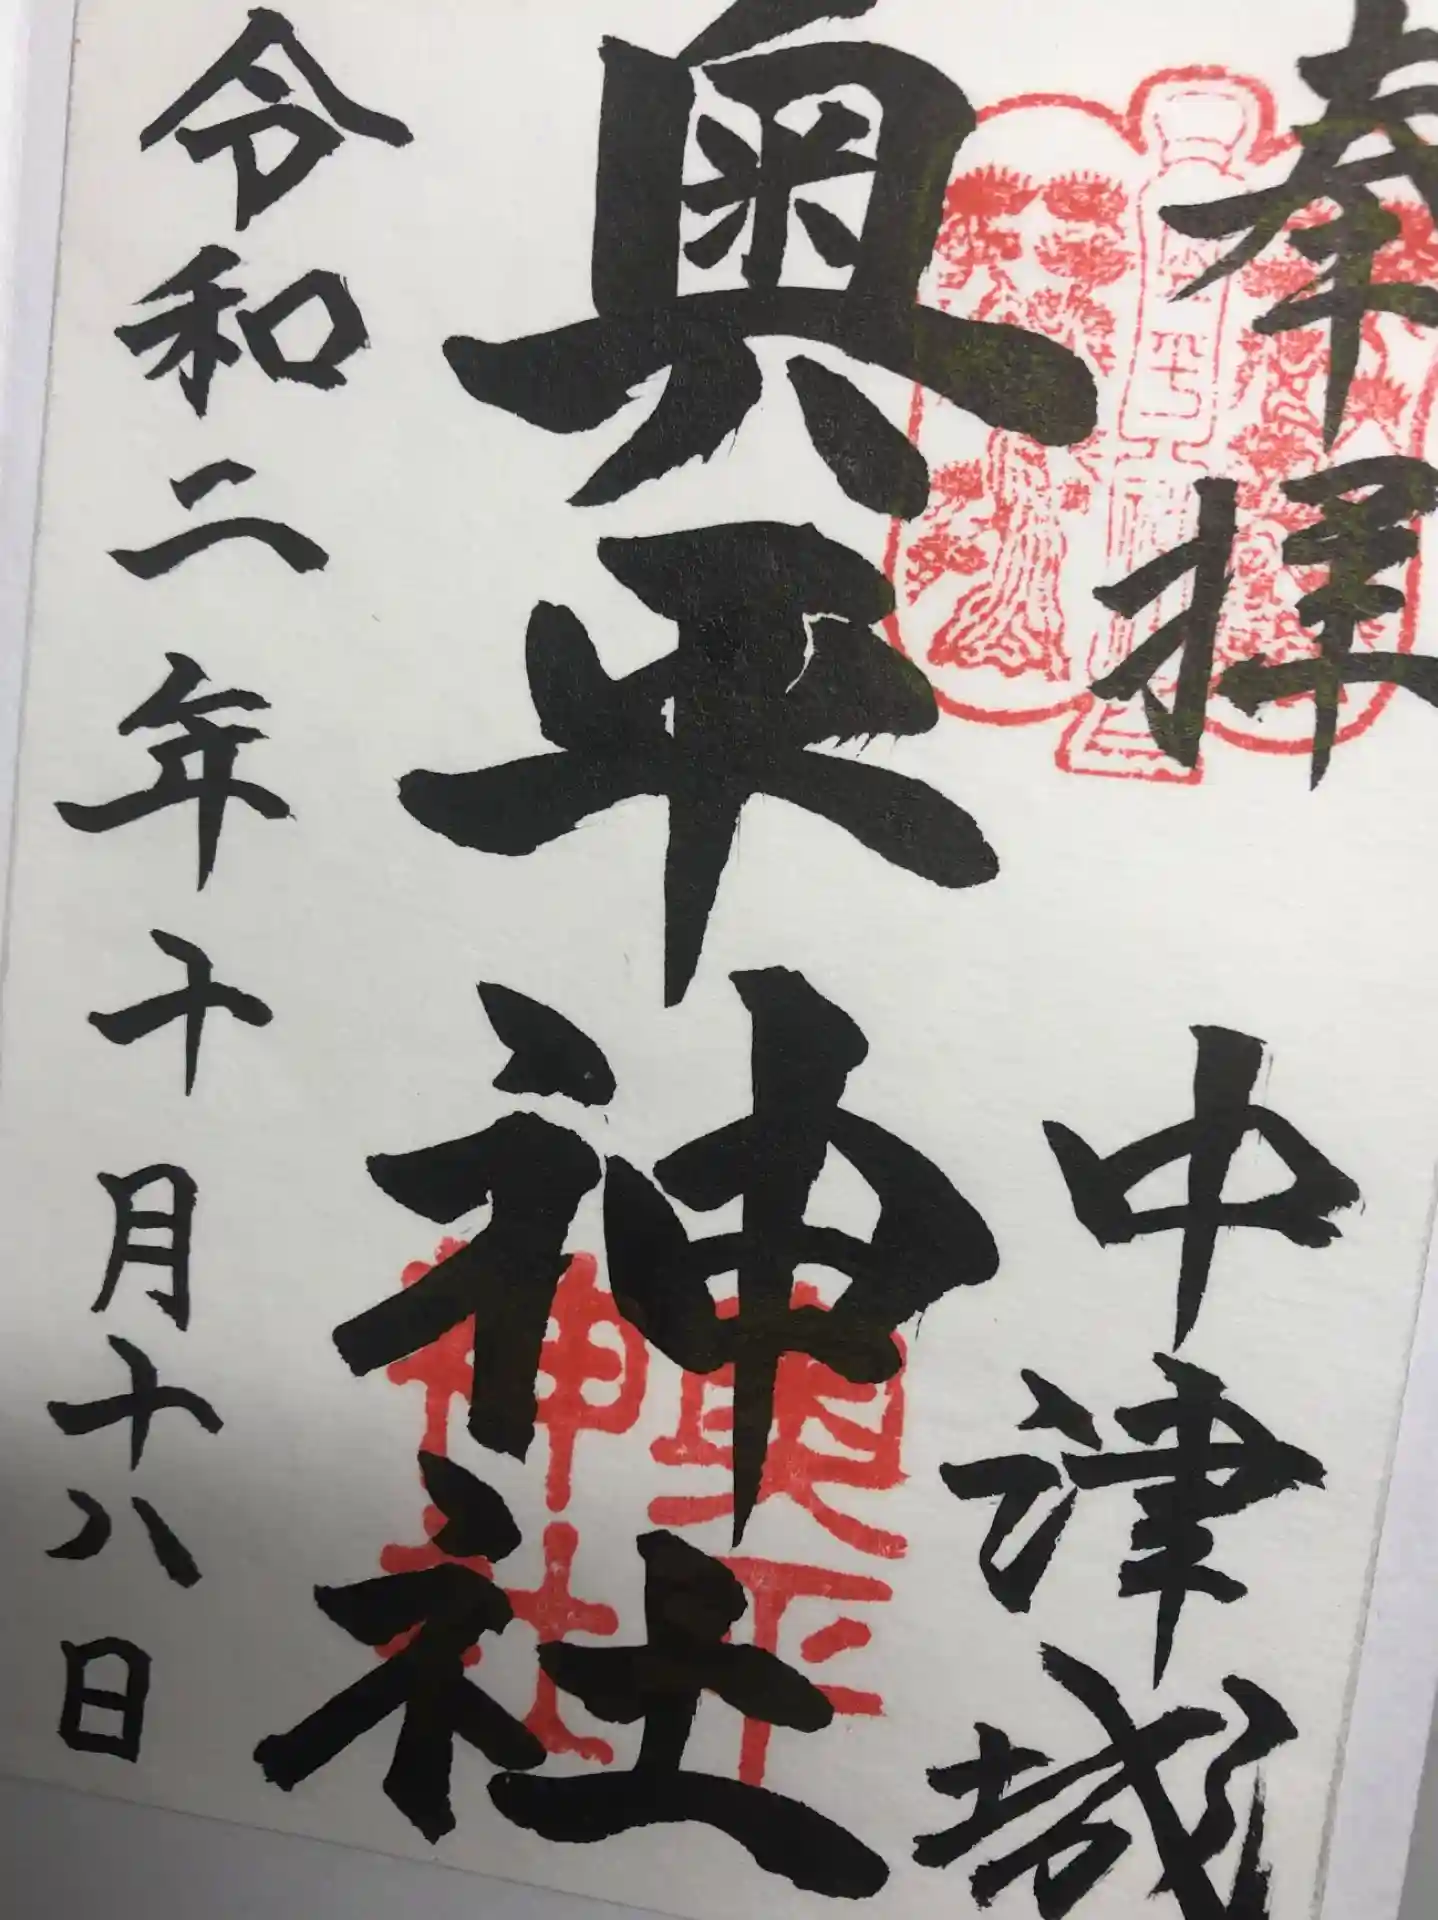 奉拝
中津城
奥平神社
奥平
神社
令和二年十月十八日